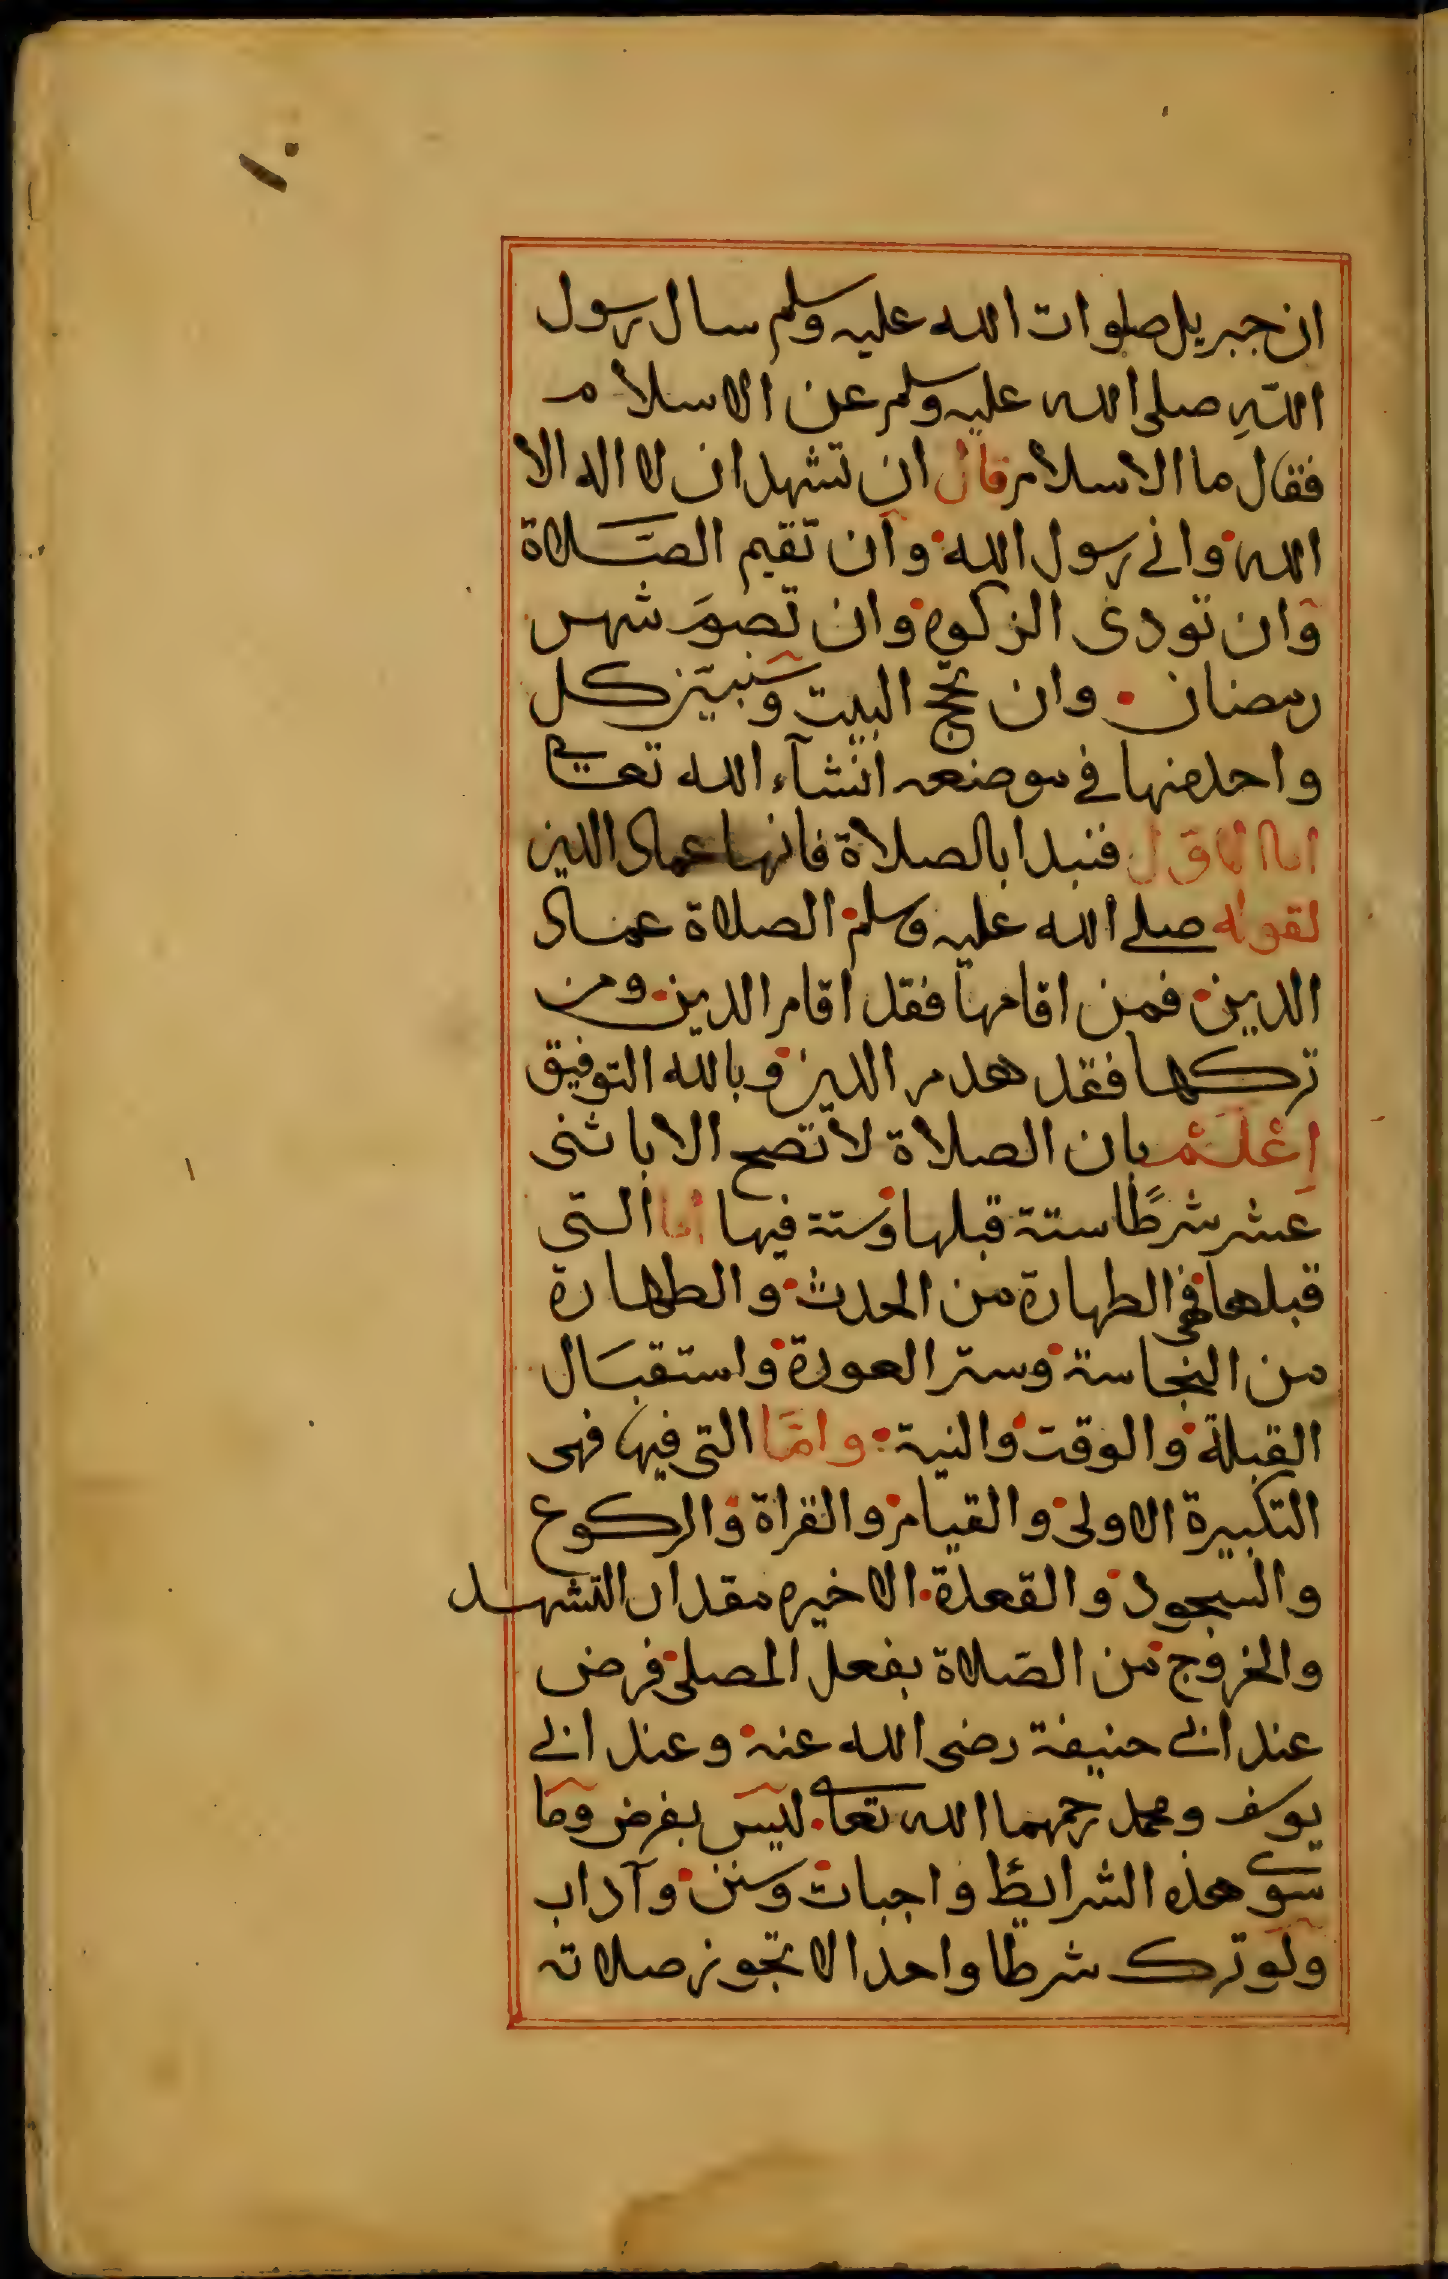 ١٠
ان جبريل صلوات الله عليه وسلم سال رسول
اللهِ صلى الله عليه وسلم عن الاسلام
فقال ما الاسلام قال ان تشهد ان لا اله الا
الله واني رسول الله وان تقيم الصَّلاة
وَان تودى الزكوة وان تصومَ شهر
رمضان وان تحج البيت وسنبين كل
واحد منها في موضعه انشآء الله تعالى
اما الاول فنبدا بالصلاة فانها عماد الدين
لقوله صلى الله عليه وسلم الصلاة عماد
الدين فمن اقامها فقد اقام الدين ومن
تركها فقد هدم الدين وبالله التوفيق
اِعْلَمْ بان الصلاة لا تصح الا باثنى
عشر شرطًا ستة قبلها وستة فيها اما التي
قبلها فهي الطهارة من الحدث والطهارة
من النجاسة وستر العورة واستقبَال
القبلة والوقت والنية وامَّا التي فيها فهى
التكبيرة الاولى والقيام والقراة والركوع
والسجود والقعدة الاخيره مقدار التشهد
والخروج من الصَلاة بفعل المصلى فرض
عند ابي حنيفة رضى الله عنه وعند ابي
يوسف ومحمد رحمهما الله تعالى ليس بفرض وما
سوى هذه الشرايط واجبات وسنن وآداب
ولو ترك شرطا واحدا لا تجوز صلاته